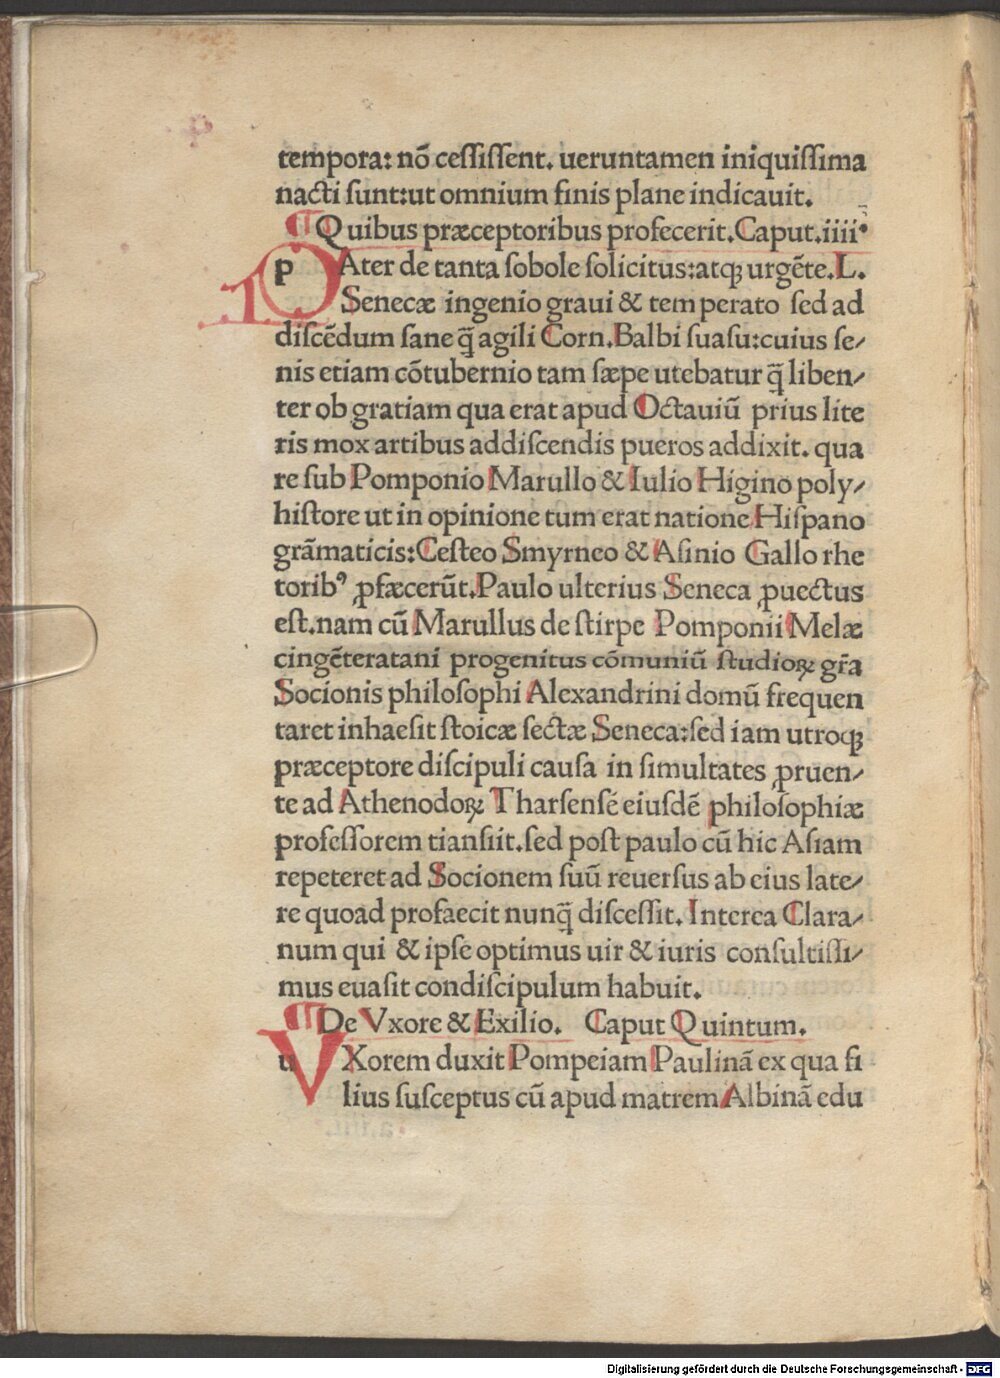 tempora: nõ ceſſiſſent. ueruntamen iniquiſſima
nacti ſunt:ut omnium finis plane indicauit.
¶Quibus præceptoribus profecerit.Caput.iiii.
PAter de tanta ſobole ſolicitus:atqꝫ urgẽte.L.
Senecæ ingenio graui & temperato ſed ad
diſcẽdum ſane q̃ agili Corn.Balbi ſuaſu:cuius ſe/
nis etiam cõtubernio tam ſæpe utebatur q̃ liben/
ter ob gratiam qua erat apud Octauiũ prius lite
ris mox artibus addiſcendis pueros addixit. qua
re ſub Pomponio Marullo & Iulio Higino poly/
hiſtore ut in opinione tum erat natione Hiſpano
grãmaticis:Ceſteo Smyrneo & Aſinio Gallo rhe
toribꝰ ꝓfæcerũt.Paulo ulterius Seneca ꝓuectus
eſt.nam cũ Marullus de ſtirpe Pomponii Melæ
cingẽteratani progenitus cõmuniũ ſtudioꝝ gr̃a
Socionis philoſophi Alexandrini domũ frequen
taret inhaeſit ſtoicæ ſectæ Seneca:ſed iam utroqꝫ
præceptore diſcipuli cauſa in ſimultates ꝓruen/
te ad Athenodoꝝ Tharſenſẽ eiuſdẽ philoſophiæ
profeſſorem tianſiit.ſed poſt paulo cũ hic Aſiam
repeteret ad Socionem ſuũ reuerſus ab eius late/
re quoad profaecit nunq̃ diſceſſit. Interea Clara/
num qui & ipſe optimus uir & iuris conſultiſſi/
mus euaſit condiſcipulum habuit.
¶De Vxore & Exilio. Caput Quintum.
uVXorem duxit Pompeiam Paulinã ex qua fi
lius ſuſceptus cũ apud matrem Albinã edu
Digitalisierung gefördert durch die Deutsche Forschungsgemeinschaft - DFG